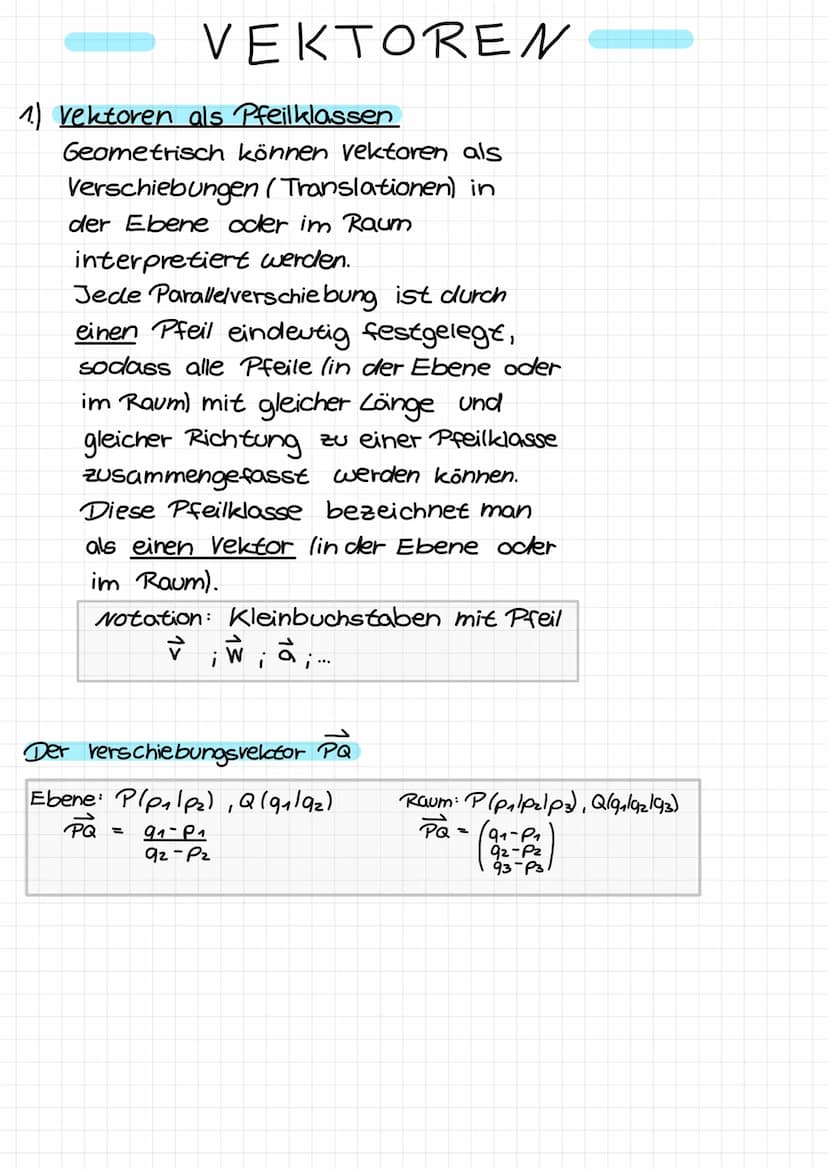 VEKTOREN
1.) Vektoren als Pfeilklassen
Geometrisch können Vektoren als
Verschiebungen (Translationen) in
der Ebene oder im Raum
interpretiert werden.
Jede Parallelverschiebung ist durch
einen Pfeil eindeutig festgelegt,
sodass alle Pfeile (in der Ebene oder
im Raum) mit gleicher Länge und
gleicher Richtung zu einer Pfeilklasse
zusammengefasst werden können.
Diese Pfeilklasse bezeichnet man
als einen Vektor (in der Ebene oder
im Raum).
Notation: Kleinbuchstaben mit Pfeil
v⃗ ; w⃗ ; a⃗ ; ...
Der Verschiebungsvektor P͞Q⃗
Ebene: P(p₁|p₂), Q(q₁|q₂)
PQ⃗ = q₁-p₁
q₂-p₂
Raum: P(p₁|p₂|p₃), Q(q₁|q₂|q₃)
PQ⃗ = (q₁-p₁
q₂-p₂
q₃-p₃)